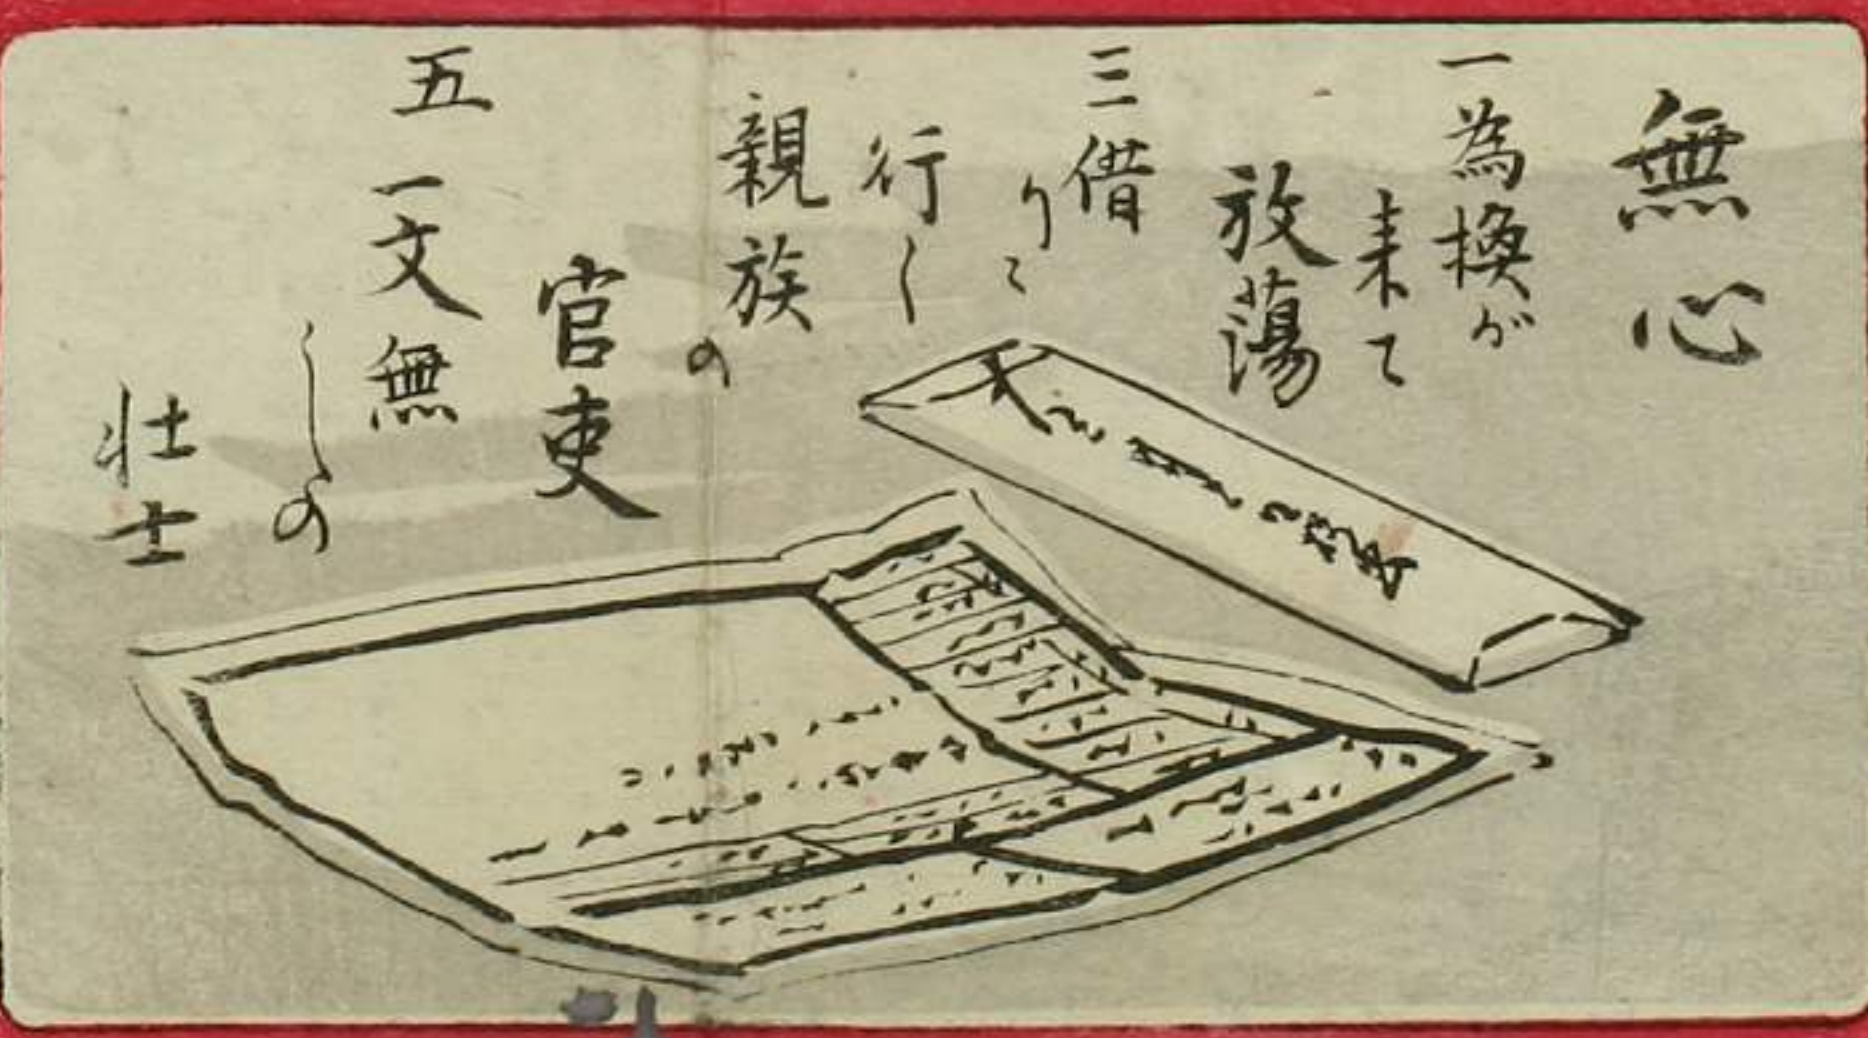 無心
一為換が
来て
放蕩
三借
りに
行く
親族
の
官吏
五一文無
しの
壮士